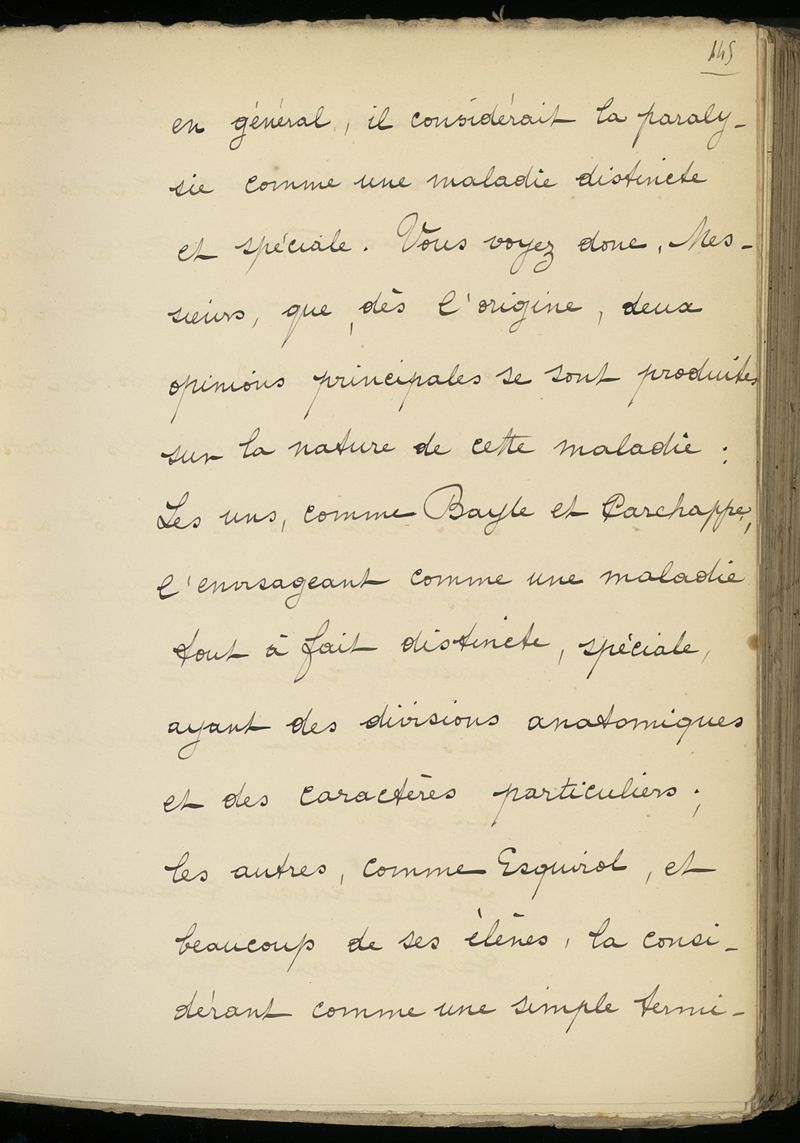 145
en général, il considérait la paraly-
sie comme une maladie distincte
et spéciale. Vous voyez donc, Mes-
sieurs, que, dès l'origine, deux
opinions principales se sont produites
sur la nature de cette maladie :
Les uns, comme Bayle et Parchappe,
l'envisageant comme une maladie
tout à fait distincte, spéciale,
ayant des divisions anatomiques
et des caractères particuliers ;
les autres, comme Esquirol, et
beaucoup de ses élèves, la consi-
dérant comme une simple termi-